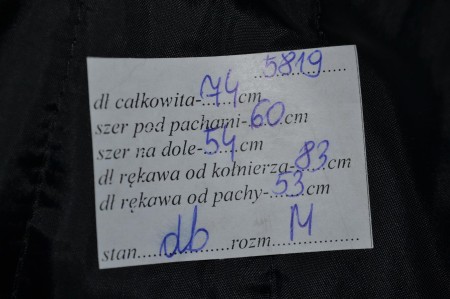 5819
dł całkowita-74cm
szer pod pachami-60cm
szer na dole-54cm
dł rękawa od kołnierza-83cm
dł rękawa od pachy-53cm
stan db rozm M